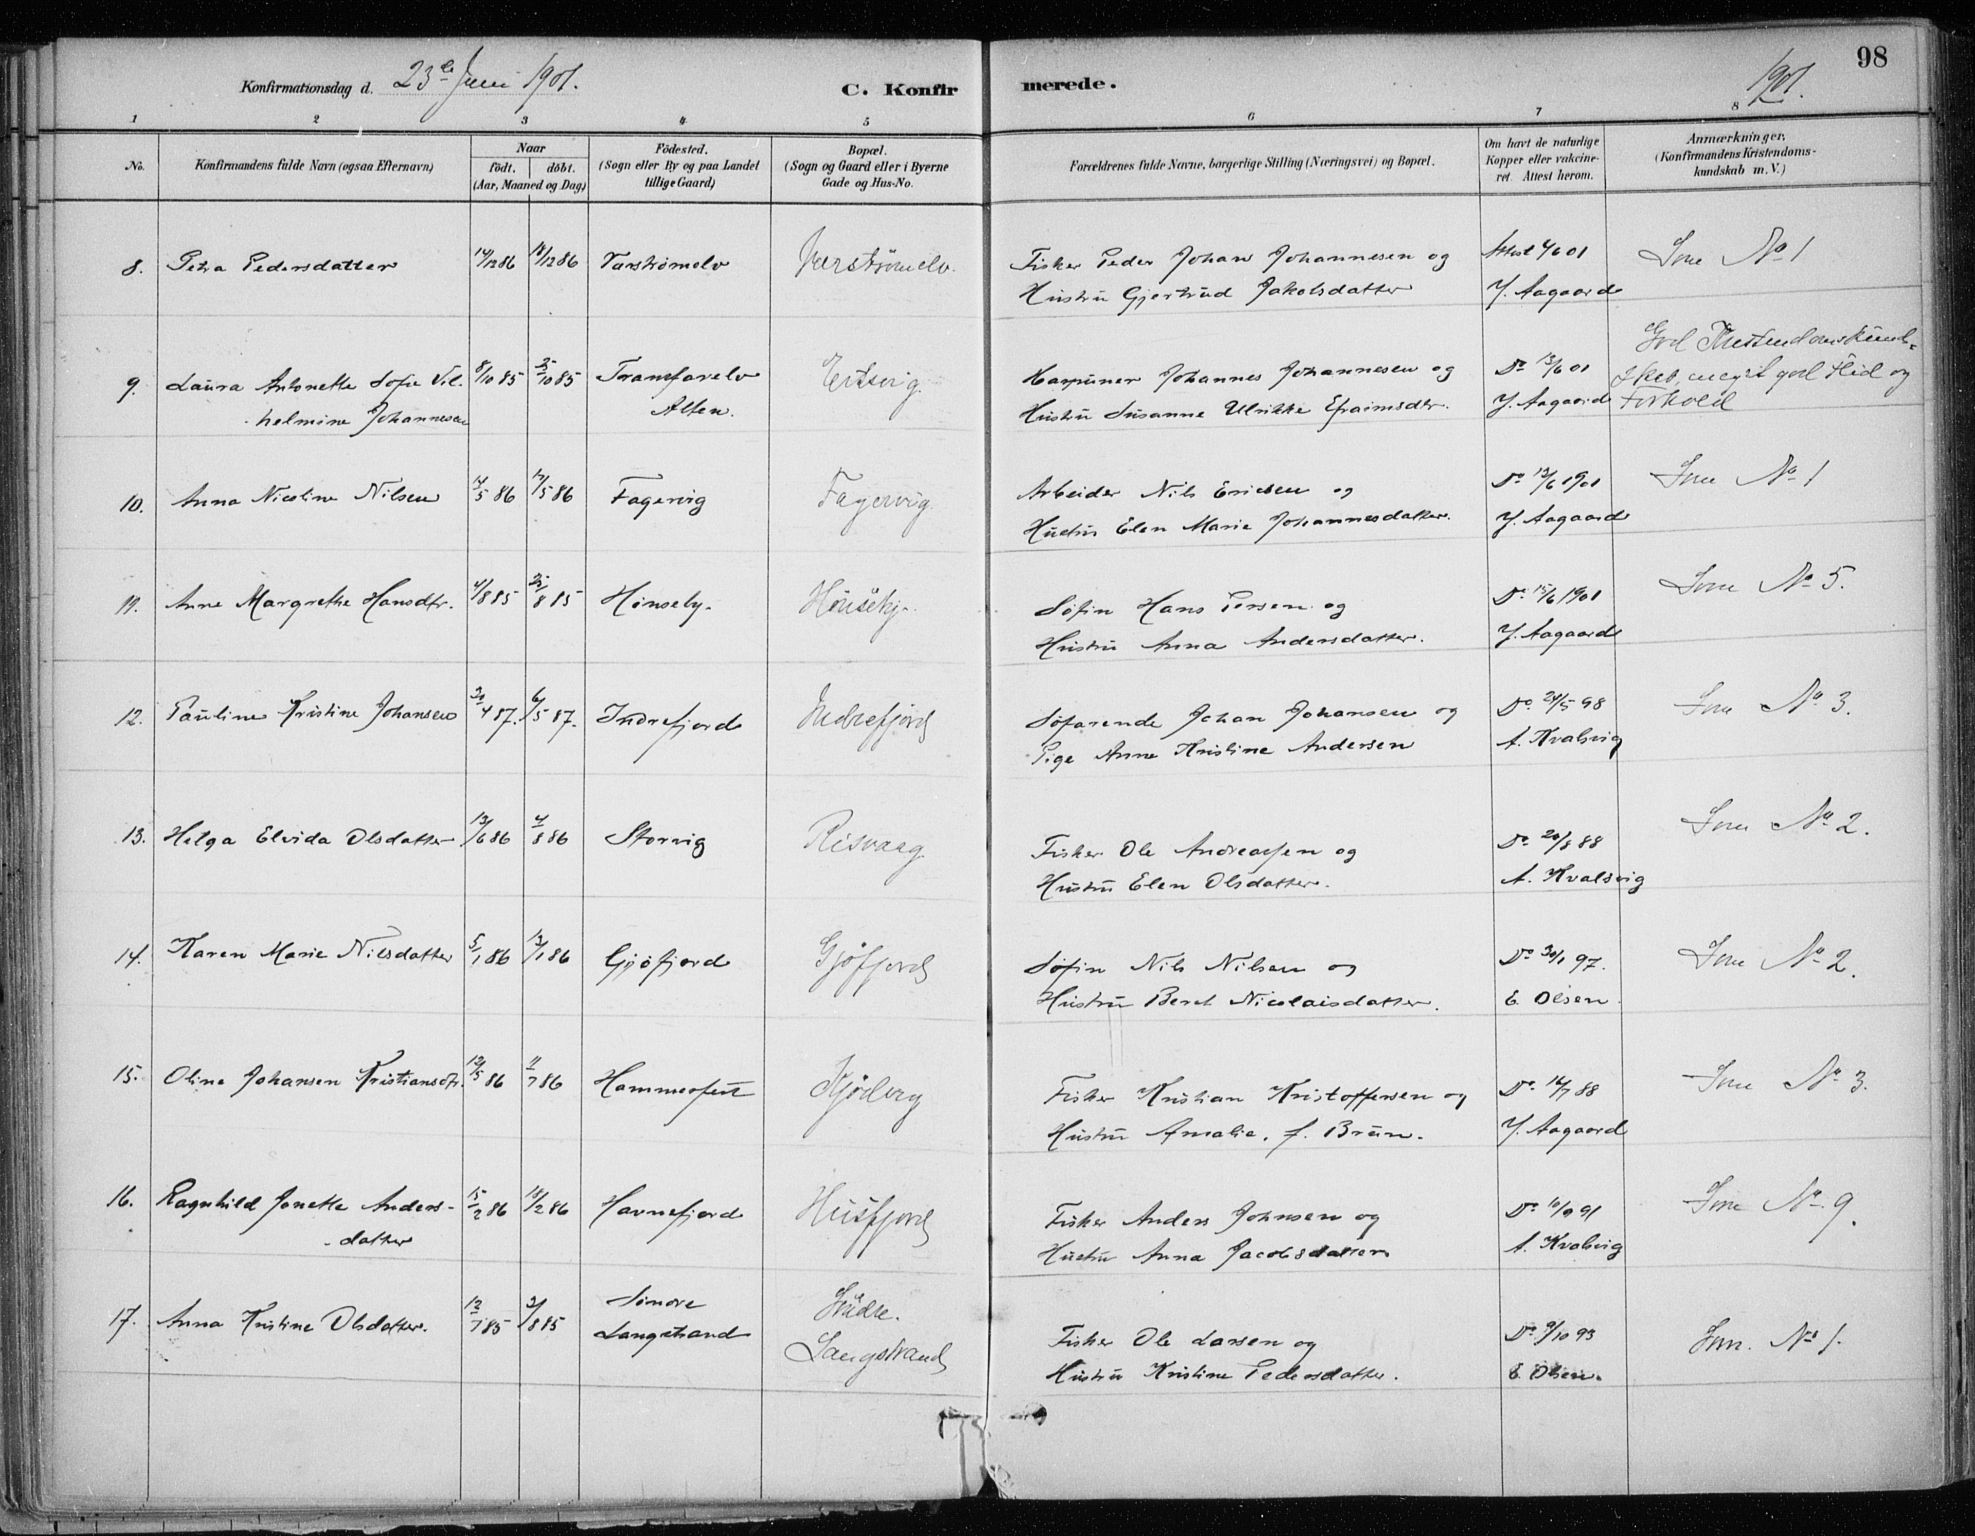 98
Konfirmationsdag d. 23de Juni 1901.
C. Konfirmerede.
1901.
1 2 3 4 5 6 7 8
No.
Konfirmandens fulde Navn (ogsaa Efternavn)
Naar
födt. döbt.
(Aar, Maaned og Dag)
Födested.
(Sogn eller By og paa Landet
tillige Gaard)
Bopæl.
(Sogn og Gaard eller i Byerne
Gade og Hus-No.
Forældrenes fulde Navne, borgerlige Stilling (Næringsvei) og Bopæl.
Om havt de naturlige
Kopper eller vakcine-
ret. Attest herom.
Anmærkninger.
(Konfirmandens Kristendoms-
kundskab m. V.)
8. Petra Pedersdatter 14/12 86 18/12 86 Varströmelv Varströmelv.
Fisker Peder Johan Johannesen og
Hustru Gjertrud Jakobsdatter
Attest 4/6 01
J. Aagaard
Som No 1
9. Laura Antonette Sofie Vil-
helmine Johannesen
8/10 85 25/10 85
Tranfarelv
Alten.
Harpuner Johannes Johannesen og
Hustru Susanne Ulrikke Efraimsdtr.
Do 13/6 01
J. Aagaard
God Kristendomskund-
skab, meget god Flid og
Forhold
10. Anna Nicoline Nilsen 4/5 86 17/5 86 Fagervig Fagervig.
Arbeider Nils Ericsen og
Hustru Elen Marie Johannesdatter.
Do 12/6 1901
J. Aagaard
Som No 1
11. Anne Margrethe Hansdtr. 4/8 85 25/8 85 Hönseby. Hönseby.
Söfin Hans Persen og
Hustru Anna Andersdatter.
Do 15/6 1901
J. Aagaard
Som No 5.
12. Pauline Kristine Johansen 20/4 87. 6/5 87. Indrefjord Indrefjord
Söfarende Johan Johansen og
Pige Anne Kristine Andersen
Do 24/5 98
A. Kvalsvig
Som No 3.
13. Helga Elvida Olsdatter 13/6 86 4/8 86 Storvig Risvaag
Fisker Ole Andreassen og
Hustru Elen Olsdatter.
Do 20/8 88
A. Kvalsvig
Som No 2.
14. Karen Marie Nilsdatter 5/1 86 12/1 86 Gjöfjord Gjöfjord
Söfin Nils Nilsen og
Hustru Beret Nicolaisdatter.
Do 30/1 97.
E. Olsen
Som No 2.
15. Oline Johansen Kristiansdtr. 12/5 86 11/7 86 Hammerfest
Fisker Kristian Kristoffersen og
Hustru Amalie, f. Brun.
Do 16/7 88
J. Aagaard
Som No 3.
16. Ragnhild Jonette Anders-
datter
15/2 86 18/2 86 Havnefjord Husfjord
Fisker Anders Johnsen og
Hustru Anna Jacobsdatter
Do 10/9 91
A. Kvalsvig
Som No 9.
17. Anna Kristine Olsdatter. 12/7 85 2/8 85
Söndre
Langstrand
Langstrand
Fisker Ole Larsen og
Hustru Kristine Pedersdatter.
Do 9/10 93
E. Olsen.
Som No 1.